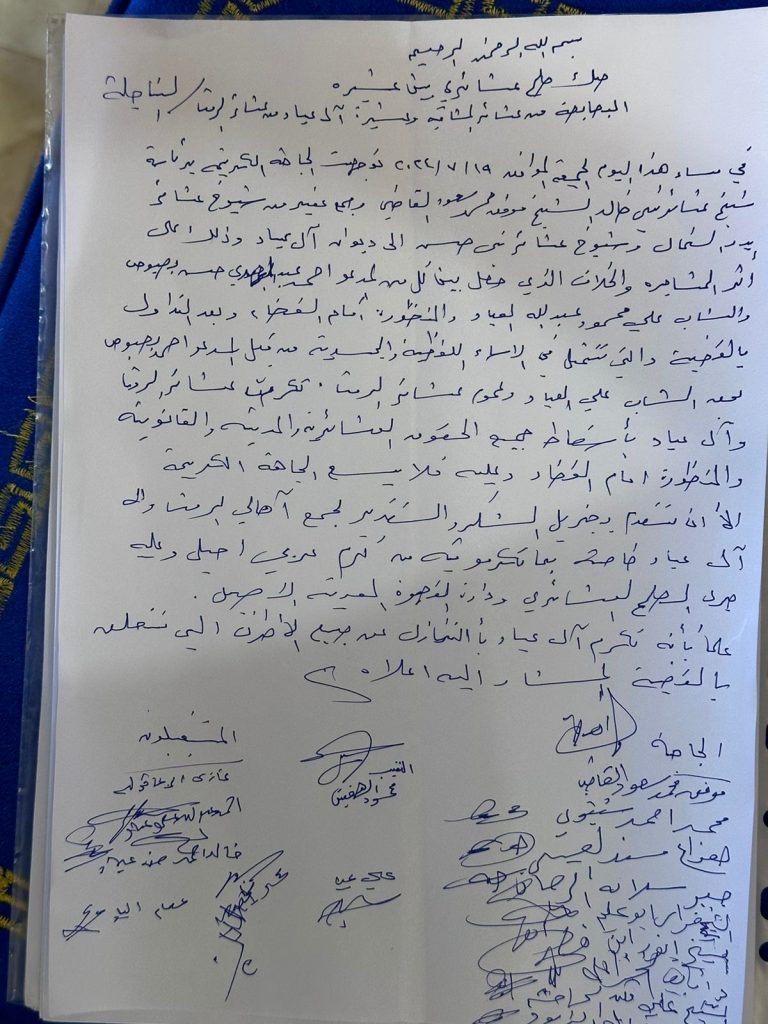 بسم الله الرحمن الرحيم
صك صلح عشائري بين عشيره
البصابصة من عشائر المشاقبه وعشيرة آل عياد من عشائر الرمثا
في مساء هذا اليوم الجمعة الموافق ٢٠٢٤/٧/١٩ توجهت الجاهة الكريمة برئاسة
شيخ عشائر بني خالد الشيخ موفق محمد سعود القاضي وجمع غفير من شيوخ عشائر
بدو الشمال وشيوخ عشائر بني حسن الى ديوان آل عياد وذلك على
أثر المشاجره والخلاف الذي حصل بين كل من المدعو احمد حسن بصبوص
والشاب علي محمود عبدالله العياد والمنظورة أمام القضاء وبعد التداول
بالقضية والتي تتمثل في الاساءه اللفظية والجسدية من قبل المدعو احمد بصبوص
بحق الشاب علي العياد وعموم عشائر الرمثا تكرمت عشائر الرمثا
وآل عياد بأسقاط جميع الحقوق العشائرية والمدنية والقانونية
والمنظورة امام القضاء وعليه فلا يسع الجاهة الكريمة
الا ان تتقدم بجزيل الشكر والتقدير لجميع آهالي الرمثا والى
آل عياد خاصة بما تكرمو به من كرم عربي اصيل وعليه
جرى الصلح العشائري ودارت القهوة العربية الاصيل.
علماً بأنه تكرم آل عياد بالتنازل عن جميع الأطراف التي تتعلق
بالقضية المشار اليه اعلاه
الجاهة
المستقبلون
موفق محمد سعود القاضي
النقيب
محمد احمد شتيوي
هزاع مسند العيسى
خالد احمد
علي عيد
عصام